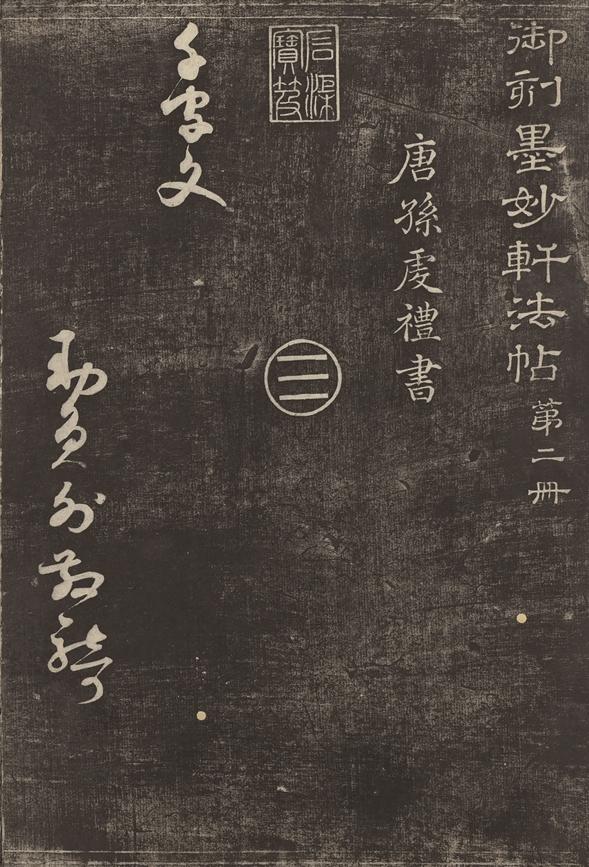 御刻墨妙軒法帖 第二冊
唐孫虔禮書
石渠寶笈
☰
千字文
勅員外散騎